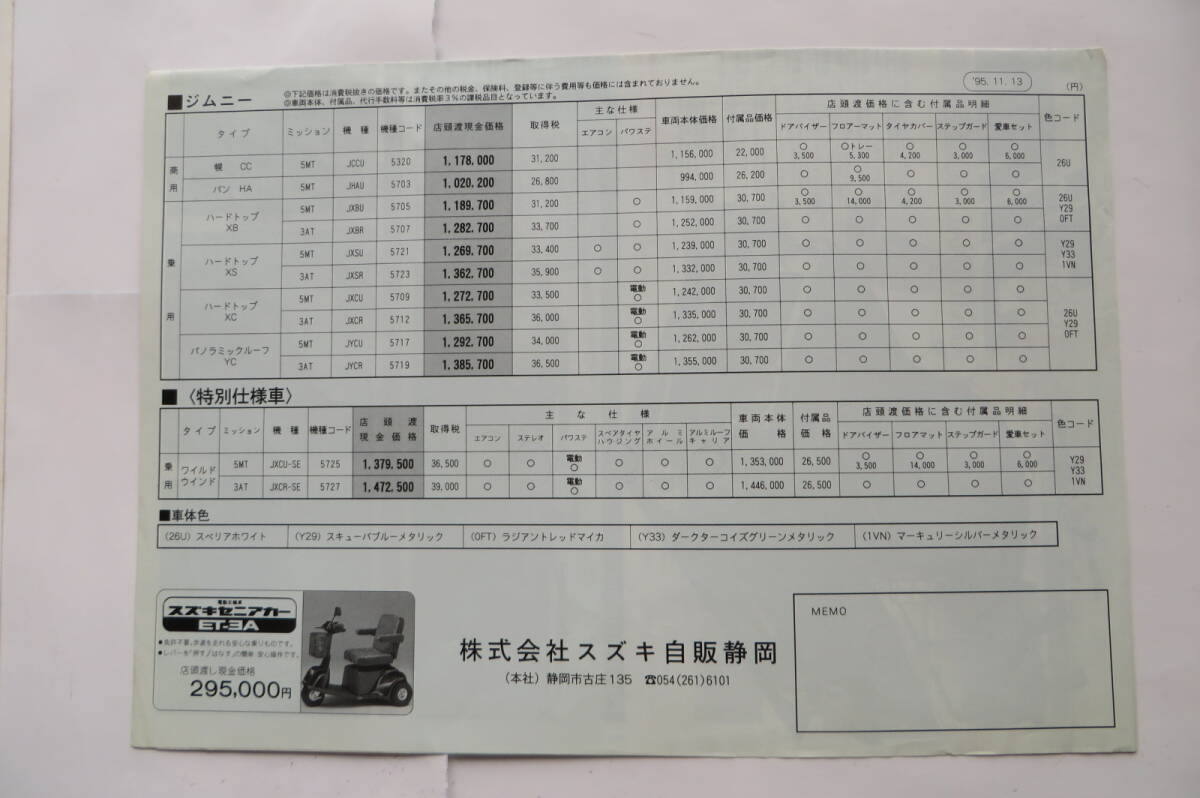 ■ジムニー
◎下記価格は消費税抜きの価格です。またその他の税金、保険料、登録等に伴う費用等も価格には含まれておりません。
◎車両本体、付属品、代行手数料等は消費税率3%の課税品目となっています。
'95. 11. 13
(円)
タイプ ミッション 機種 機種コード 店頭渡現金価格 取得税 主な仕様 車両本体価格 付属品価格 店頭渡価格に含む付属品明細 色コード
エアコン パワステ ドアバイザー フロアーマット タイヤカバー ステップガード 愛車セット
商用 幌 CC 5MT JCCU 5320 1,178,000 31,200 1,156,000 22,000 ○3,500 ○トレー5,300 ○4,200 ○3,000 ○6,000 26U
バン HA 5MT JHAU 5703 1,020,200 26,800 994,000 26,200 ○ ○9,500 ○ ○ ○
乗用 ハードトップ XB 5MT JXBU 5705 1,189,700 31,200 ○ 1,159,000 30,700 ○3,500 ○14,000 ○4,200 ○3,000 ○6,000 26U Y29 0FT
3AT JXBR 5707 1,282,700 33,700 ○ 1,252,000 30,700 ○ ○ ○ ○ ○
ハードトップ XS 5MT JXSU 5721 1,269,700 33,400 ○ ○ 1,239,000 30,700 ○ ○ ○ ○ ○ Y29 Y33 1VN
3AT JXSR 5723 1,362,700 35,900 ○ ○ 1,332,000 30,700 ○ ○ ○ ○ ○
ハードトップ XC 5MT JXCU 5709 1,272,700 33,500 電動○ 1,242,000 30,700 ○ ○ ○ ○ ○ 26U Y29 0FT
3AT JXCR 5712 1,365,700 36,000 電動○ 1,335,000 30,700 ○ ○ ○ ○ ○
パノラミックルーフ YC 5MT JYCU 5717 1,292,700 34,000 電動○ 1,262,000 30,700 ○ ○ ○ ○ ○
3AT JYCR 5719 1,385,700 36,500 電動○ 1,355,000 30,700 ○ ○ ○ ○ ○
■〈特別仕様車〉
タイプ ミッション 機種 機種コード 店頭渡現金価格 取得税 主な仕様 車両本体価格 付属品価格 店頭渡価格に含む付属品明細 色コード
エアコン ステレオ パワステ スペアタイヤハウジング アルミホイール アルミルーフキャリア ドアバイザー フロアマット ステップガード 愛車セット
乗用 ワイルドウインド 5MT JXCU-SE 5725 1,379,500 36,500 ○ ○ 電動○ ○ ○ ○ 1,353,000 26,500 ○3,500 ○14,000 ○3,000 ○6,000 Y29 Y33 1VN
3AT JXCR-SE 5727 1,472,500 39,000 ○ ○ 電動○ ○ ○ ○ 1,446,000 26,500 ○ ○ ○ ○
■車体色
(26U) スペリアホワイト (Y29) スキューバブルーメタリック (0FT) ラジアントレッドマイカ (Y33) ダークターコイズグリーンメタリック (1VN) マーキュリーシルバーメタリック
スズキセニアカー
ET-3A
●免許不要。歩道を走れる安心な乗りものです。
●レバーを「押す」「はなす」の簡単・安心操作です。
店頭渡し現金価格
295,000円
株式会社スズキ自販静岡
(本社) 静岡市古庄135 ☎054(261)6101
MEMO